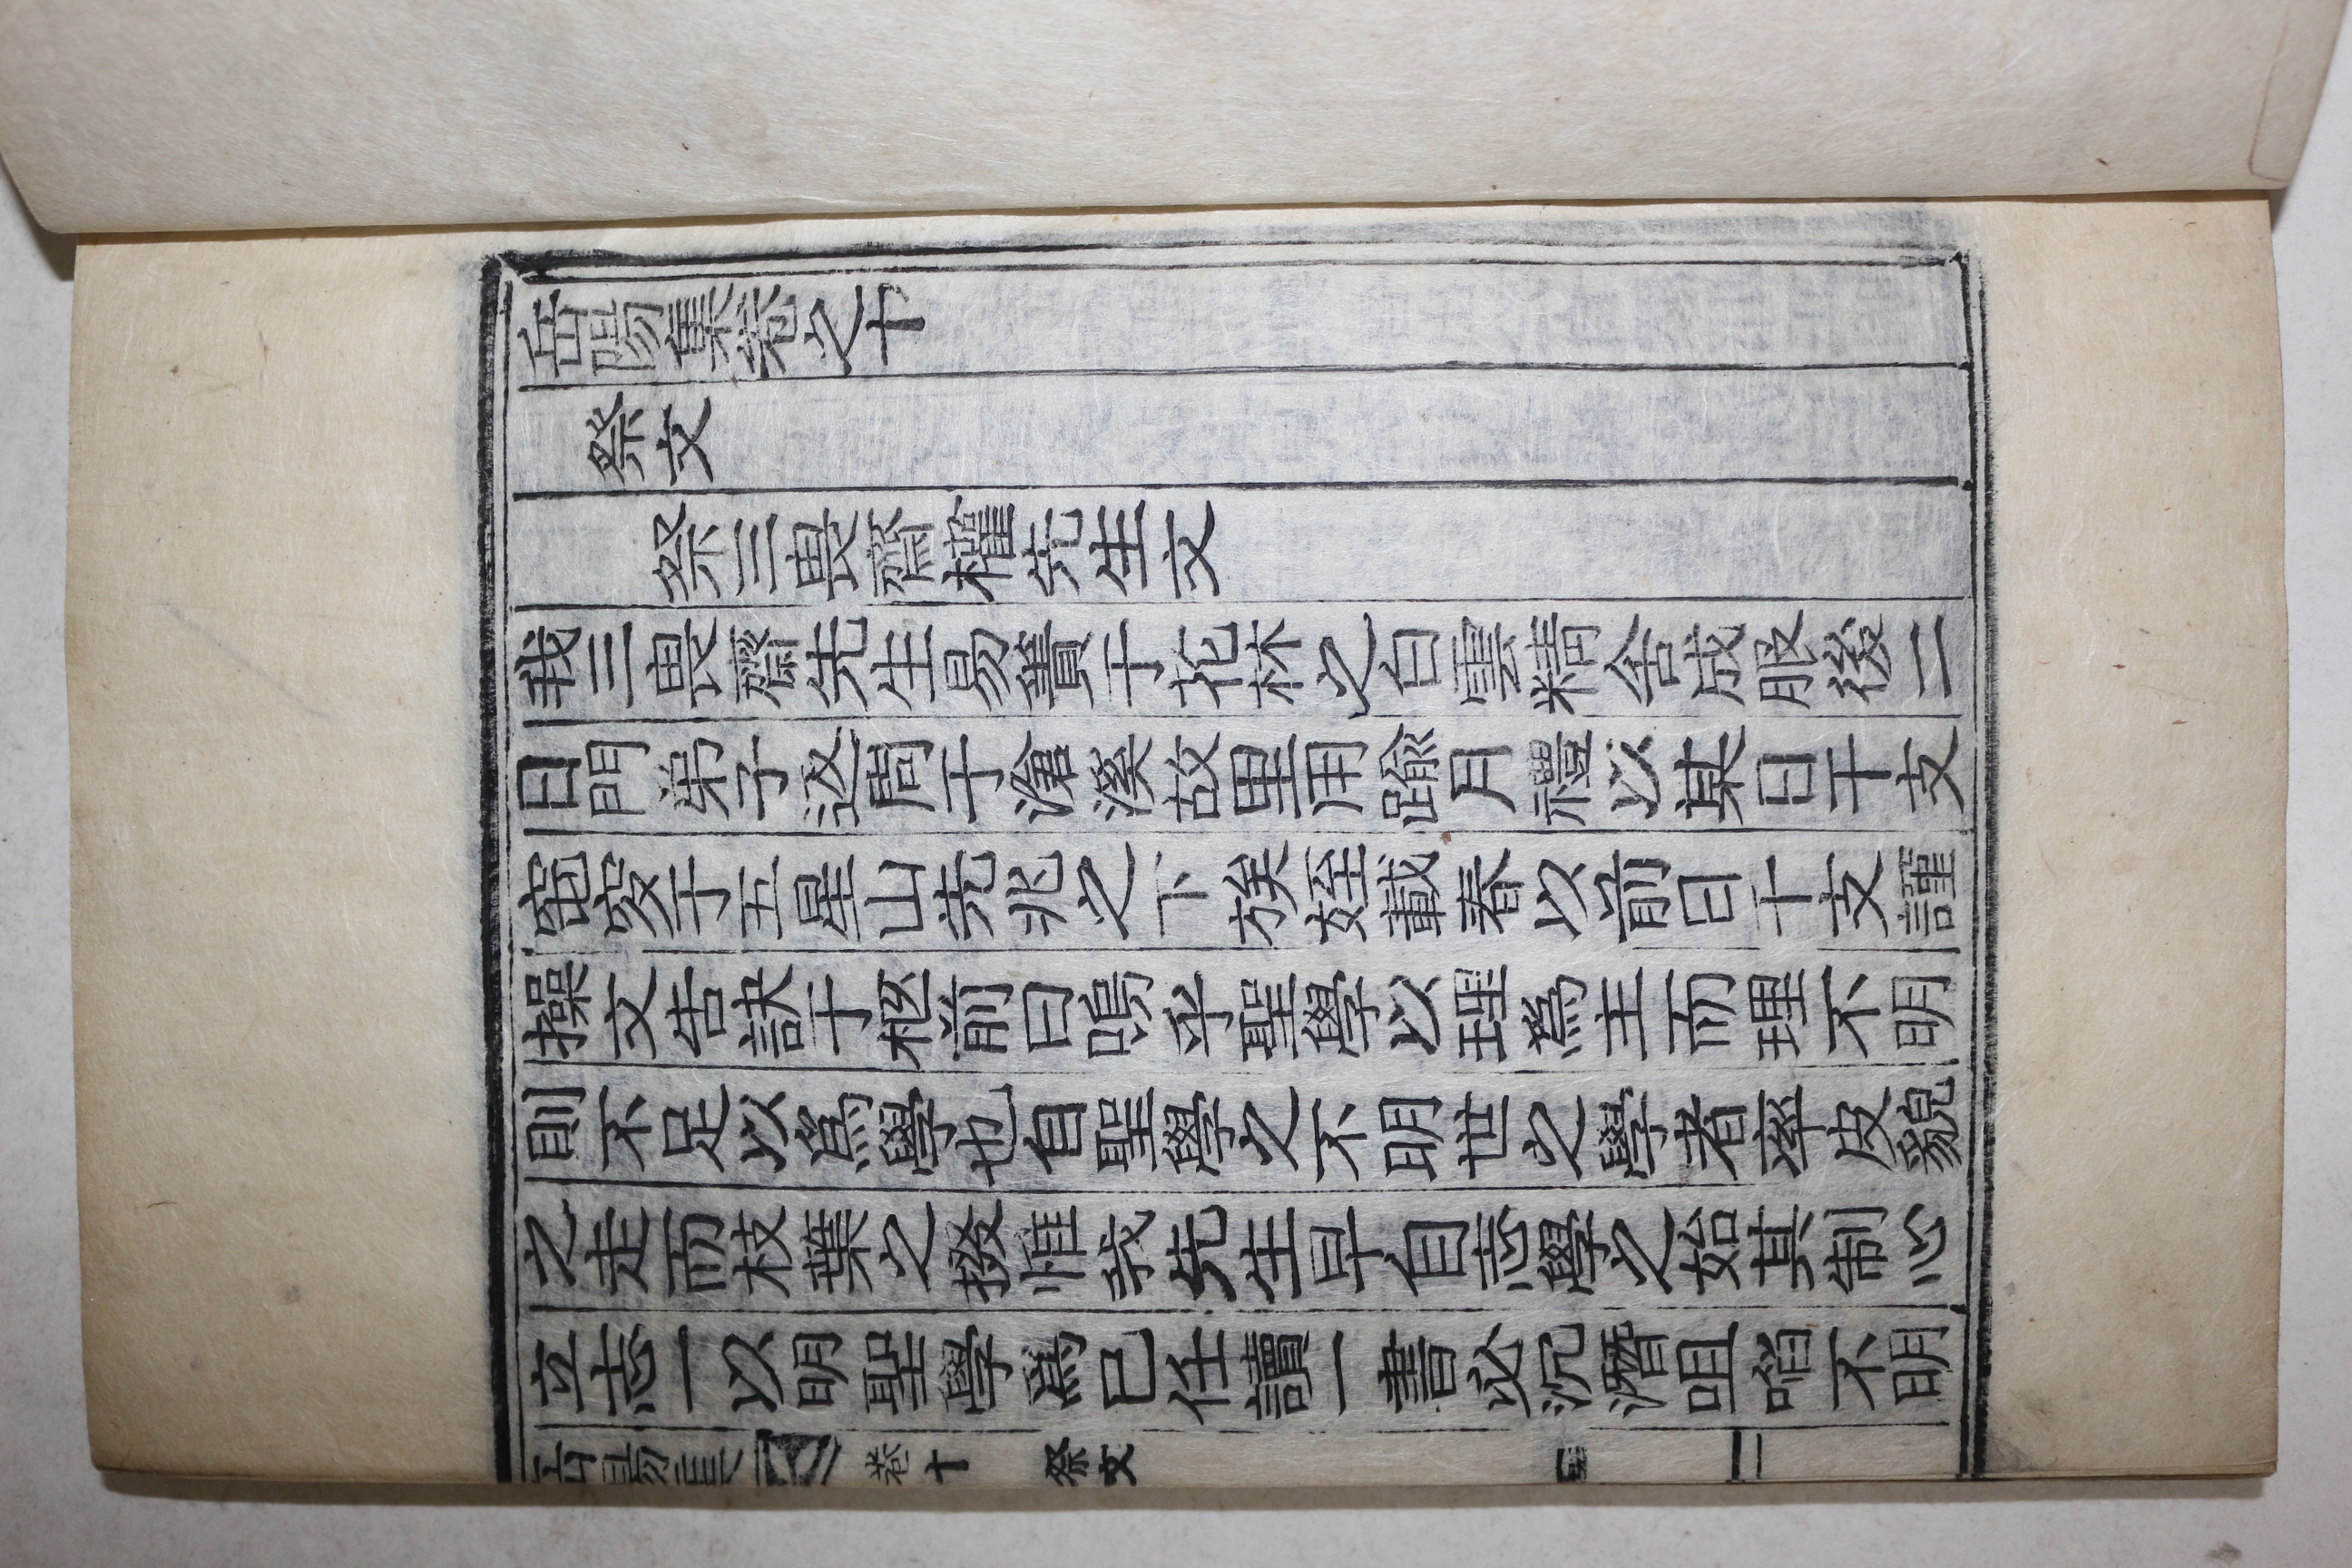 岳陽集卷之十
祭文
祭三畏齋權先生文
我三畏齋先生易簀于花林之白雲精舍成服後二
日門弟子返周于滄溪故里用踰月禮以某日干支
窀穸于五星山先兆之下族姪載春以前日干支謹
操文告訣于柩前曰嗚乎聖學以理爲主而理不明
則不足以爲學也自聖學之不明世之學者率皮貌
之走而枝葉之掇惟我先生早自志學之始其制心
立志一以明聖學爲己任讀一書必沉潛咀㗖不明
岳陽集 卷十 祭文 一